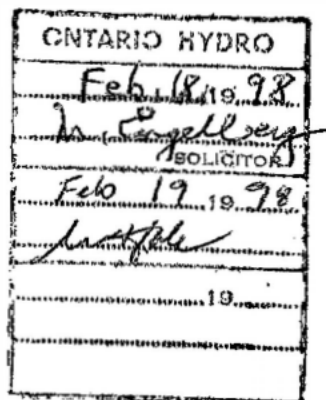 ONTARIO HYDRO
Feb. 18 19 98
M. Engelberg
SOLICITOR
Feb 19 19 98
19